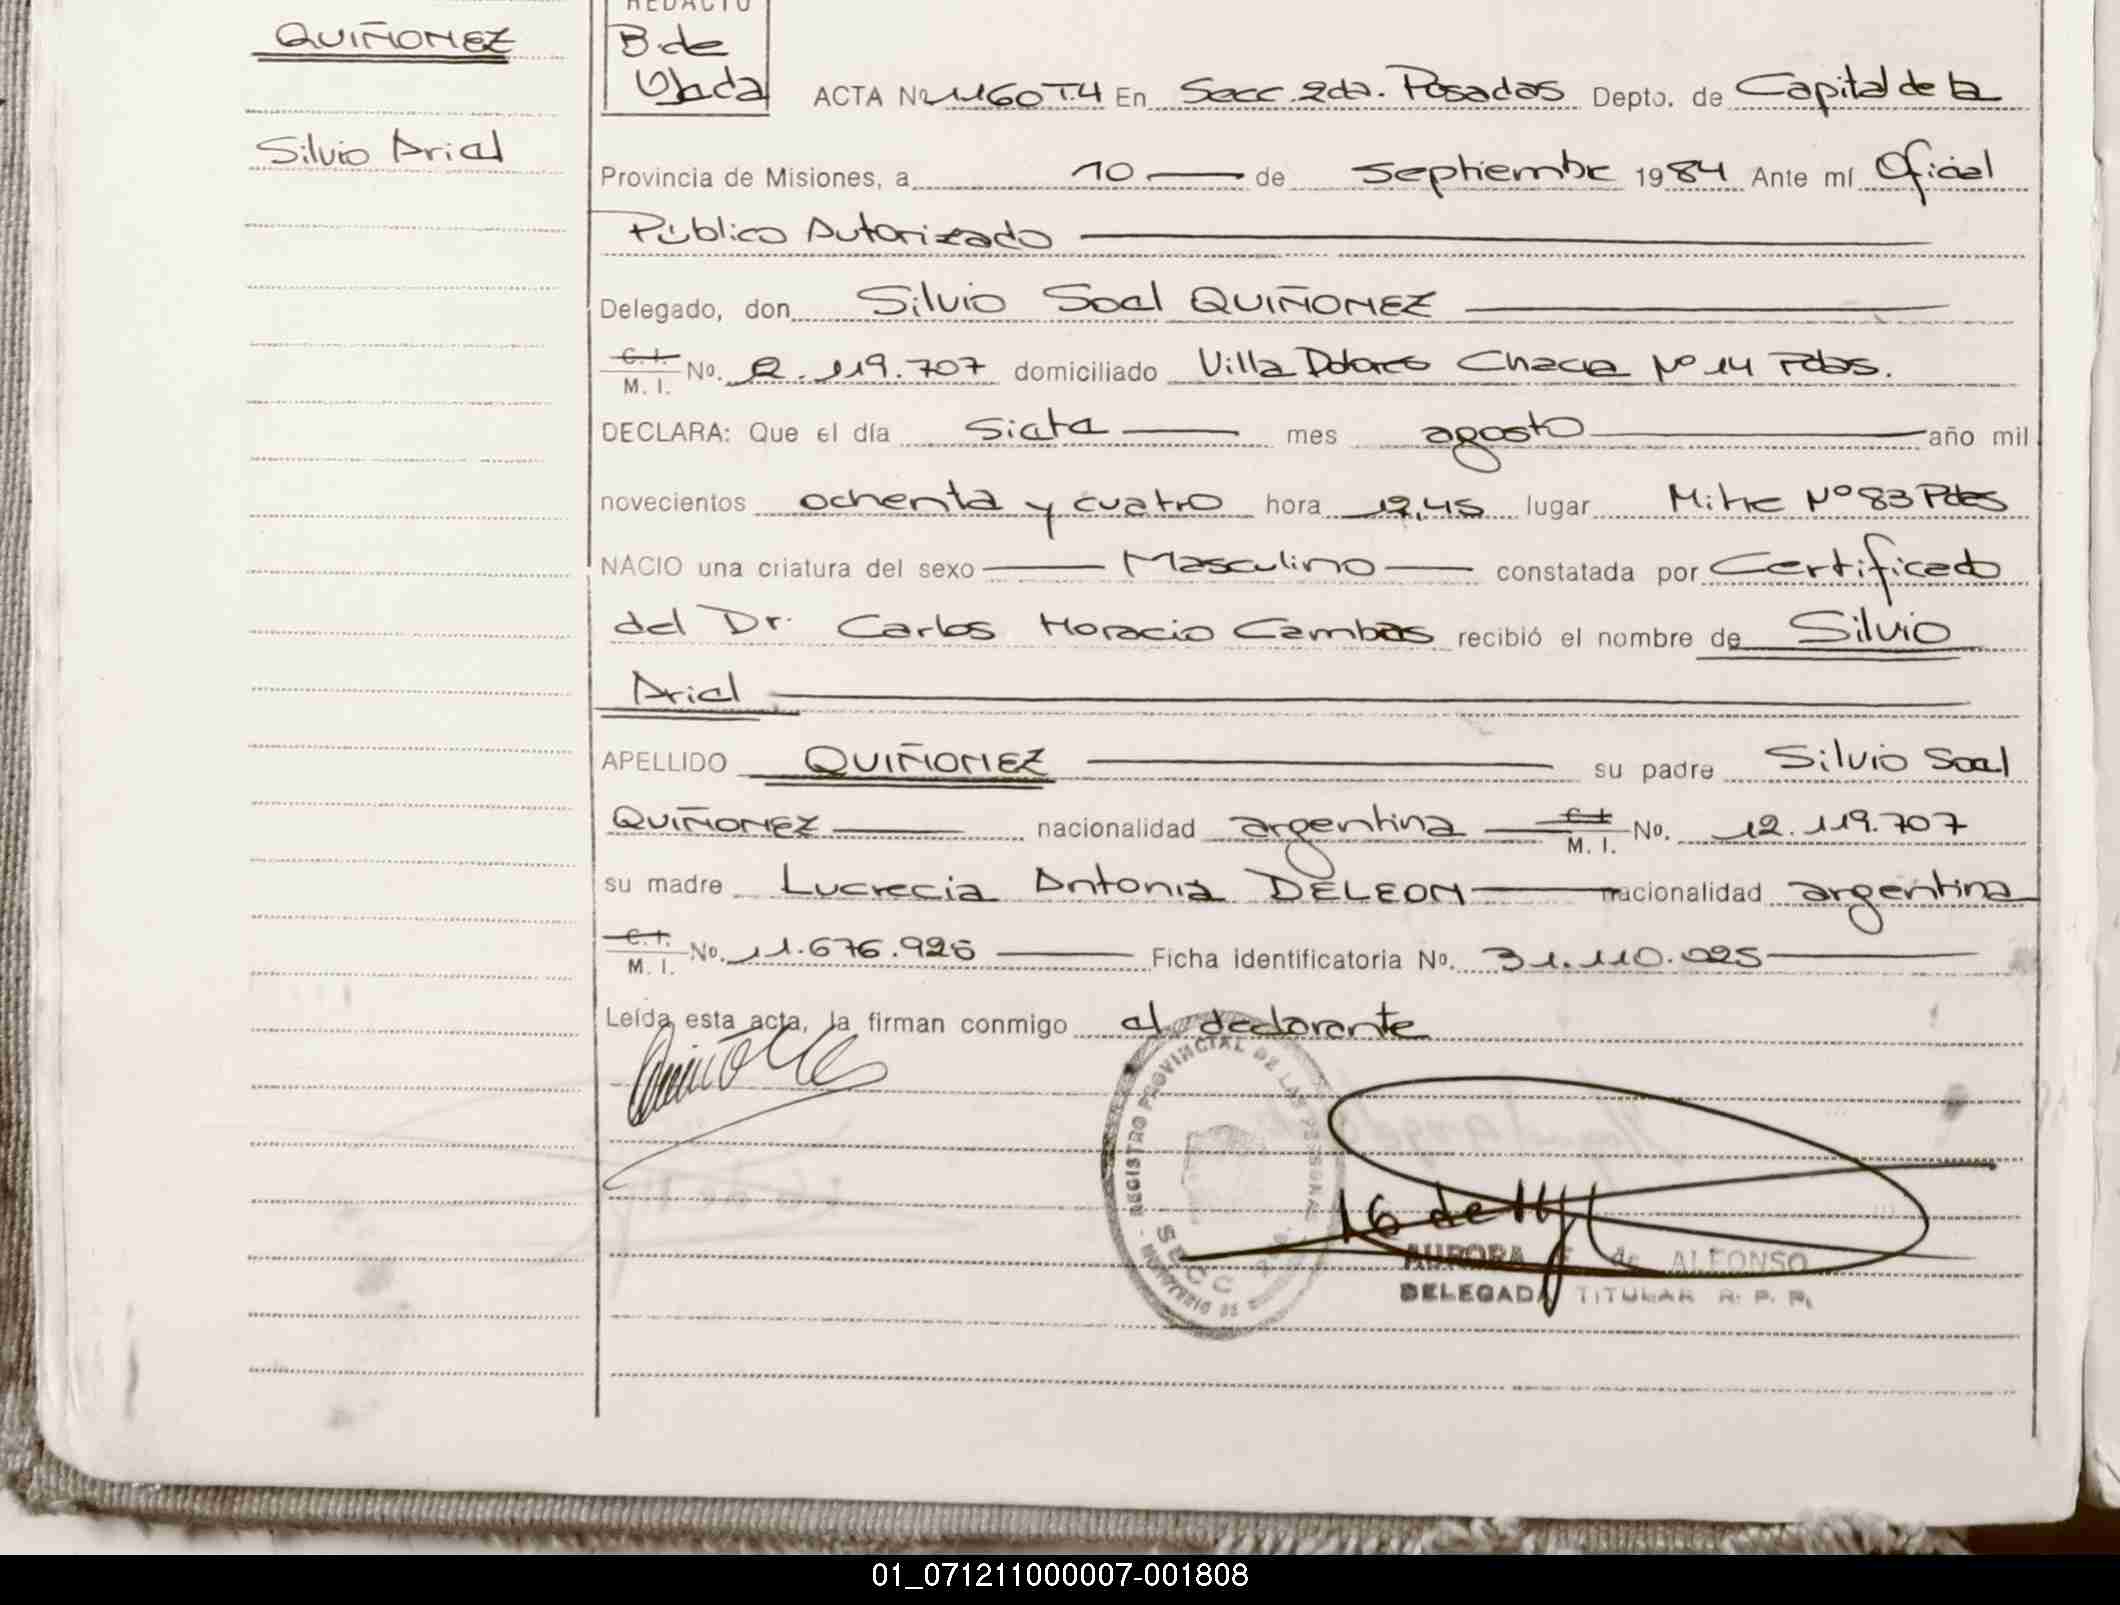 REDACTO
QUIÑONEZ
B. de
Ujeda
ACTA Nº 1160 T.4 En Secc. 2da. Posadas Depto. de Capital de la
Silvio Ariel
Provincia de Misiones, a 10 de septiembre 1984 Ante mí Oficial
Público Autorizado
Delegado, don Silvio Soel QUIÑONEZ
C. I. / M. I. No. 12.119.707 domiciliado Villa Dolores Chacra Nº 14 Pdas.
DECLARA: Que el día siete mes agosto año mil
novecientos ochenta y cuatro hora 12,45 lugar Mitre Nº 83 Pdas
NACIO una criatura del sexo Masculino constatada por Certificado
del Dr. Carlos Horacio Cambas recibió el nombre de Silvio
Ariel
APELLIDO QUIÑONEZ su padre Silvio Soel
QUIÑONEZ nacionalidad argentina C. I. / M. I. No. 12.119.707
su madre Lucrecia Antonia DELEON nacionalidad argentina
C. I. / M. I. No. 11.676.926 Ficha identificatoria No. 31.110.025
Leída esta acta, la firman conmigo el declarante
REGISTRO PROVINCIAL DE LAS PERSONAS
SECC
MINISTERIO DE
AURORA de ALFONSO
DELEGADA TITULAR R. P. P.
01_071211000007-001808